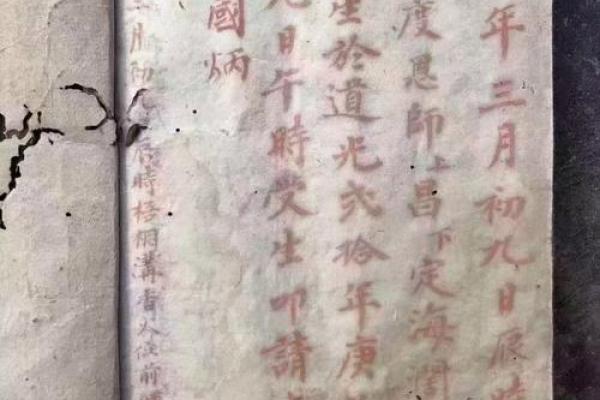 年三月初九日辰時
度恩師上昌下定海閏
生於道光弍拾年庚
日午時受生叩請
國炳
三月初九辰時梧明溝
前